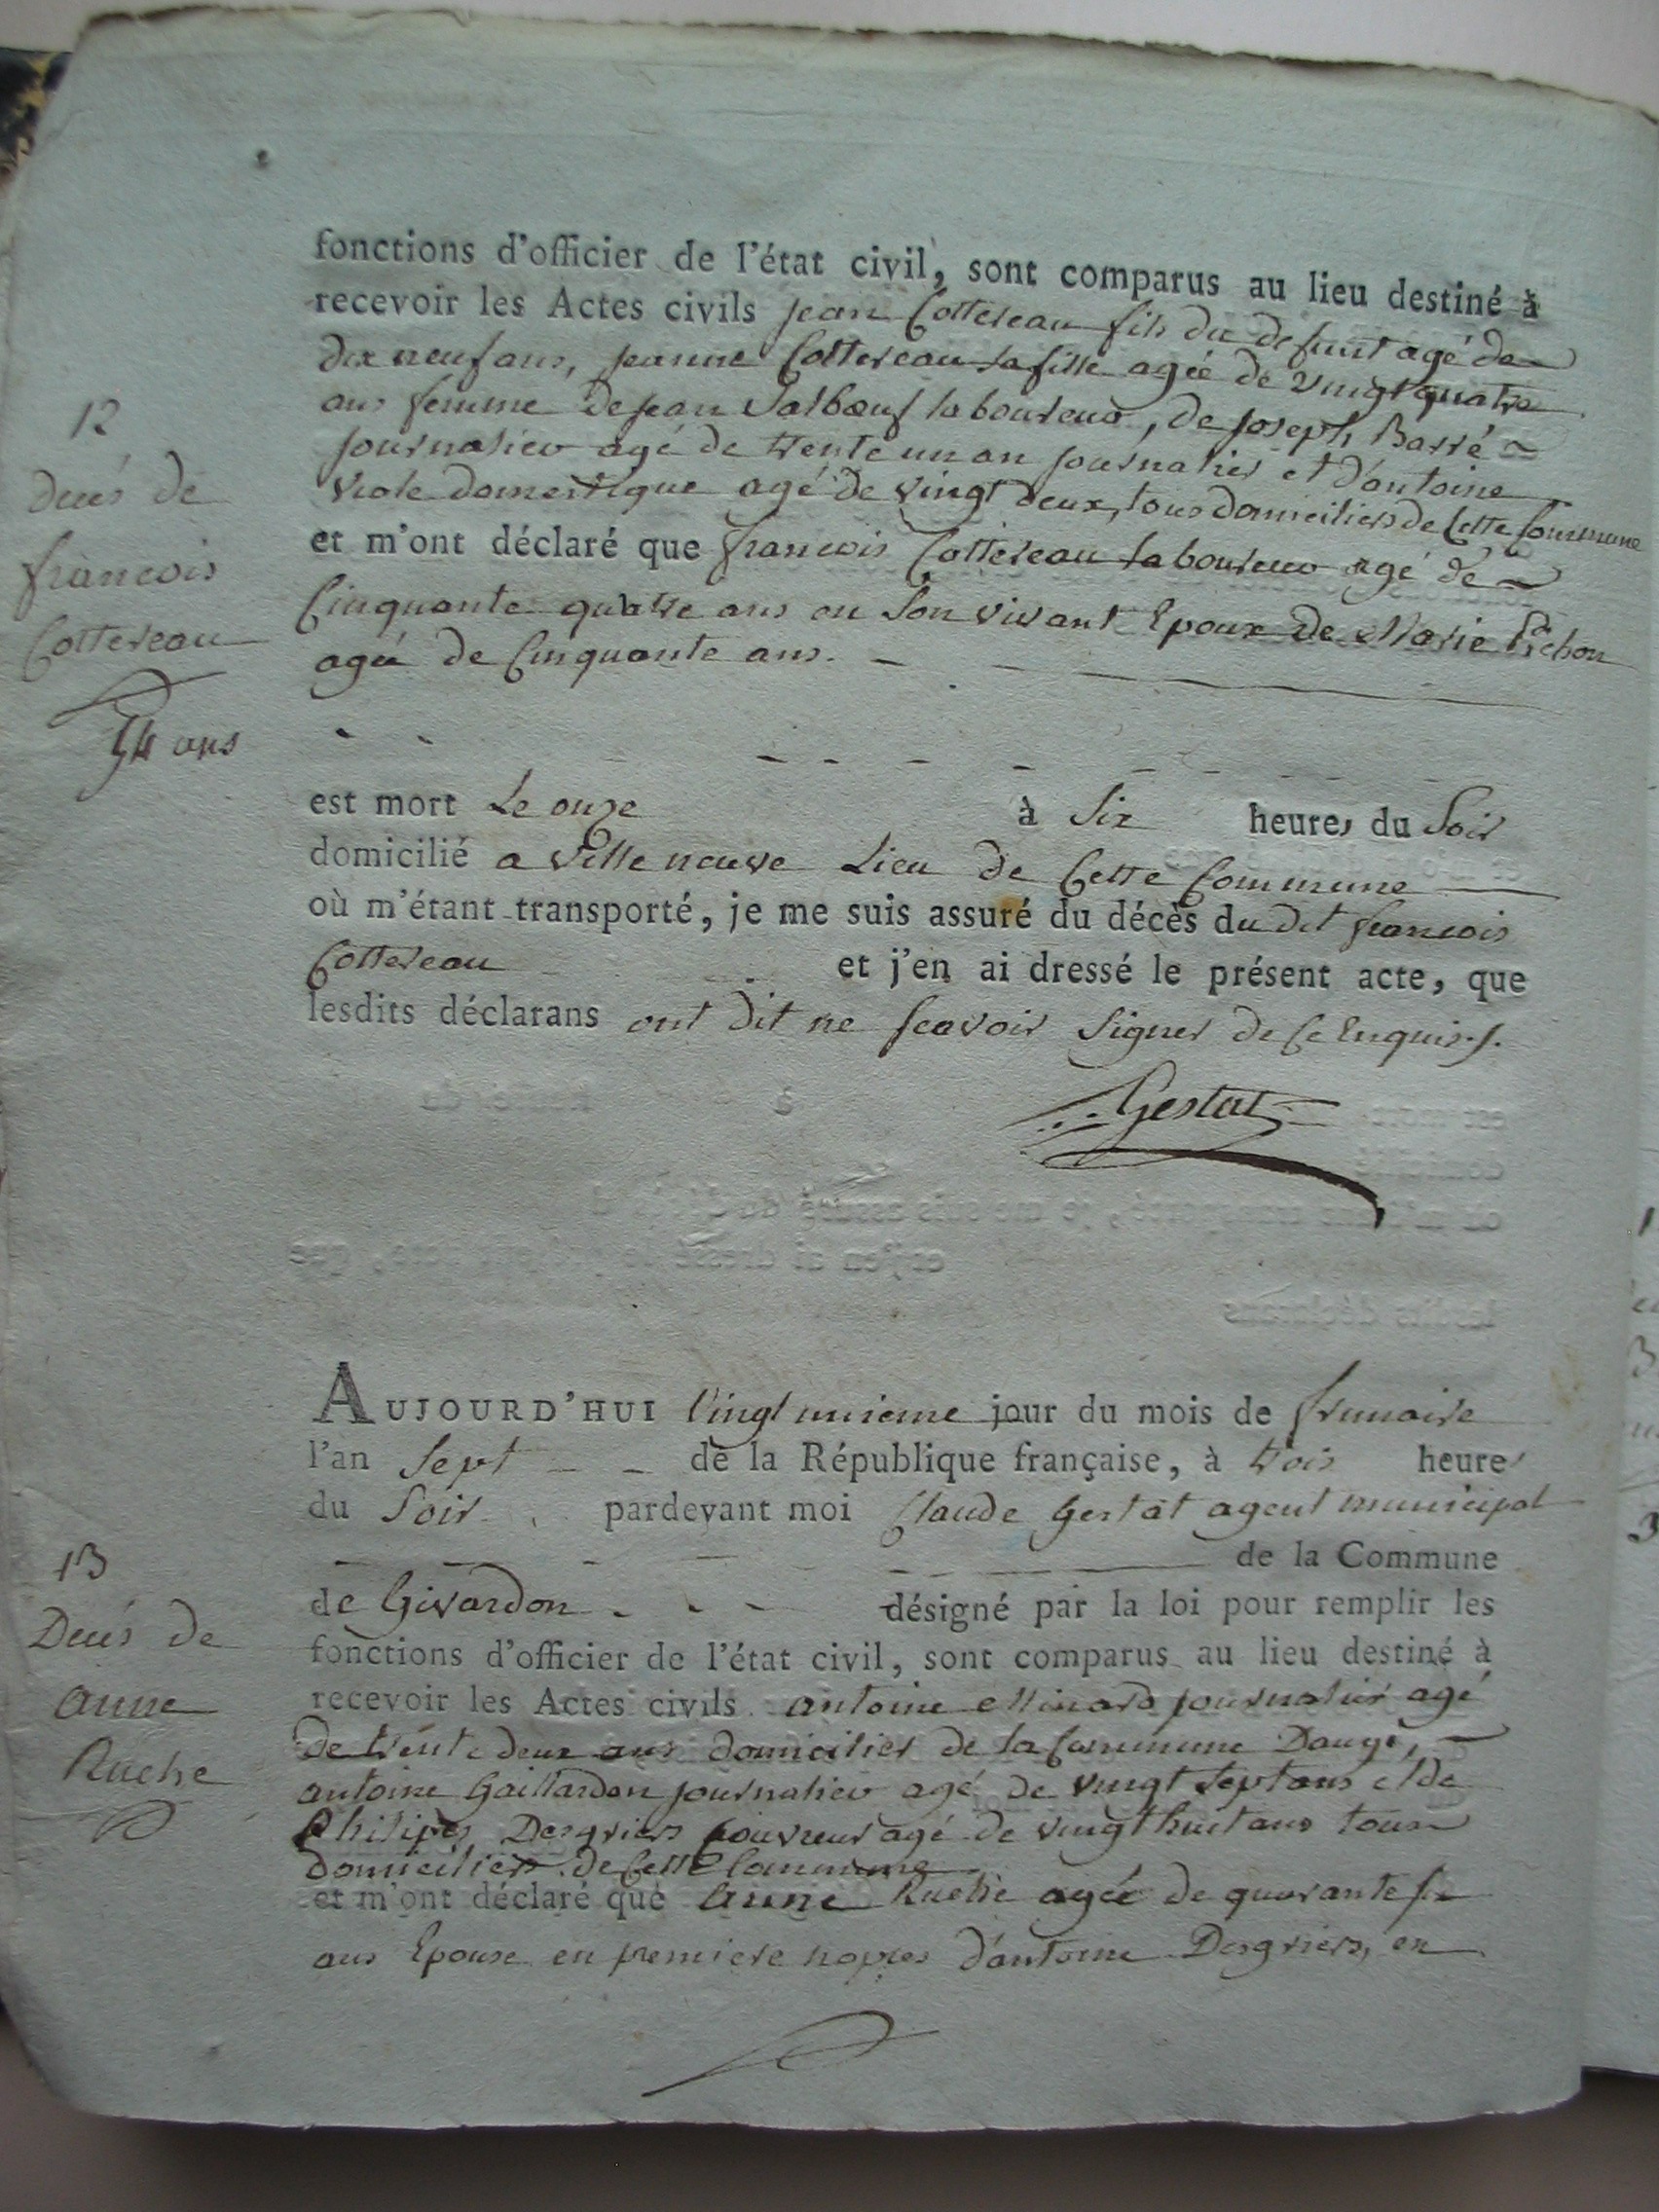 fonctions d'officier de l'état civil, sont comparus au lieu destiné à
recevoir les Actes civils jean Cottereau fils du defunt agé de
dix neuf ans, jeanne Cottereau sa fille agée de vingt quatre
ans femme de jean Salbœuf laboureur, de joseph Barré
journalier agé de trente un an journalier et d'antoine
Viole domestique agé de vingt deux, tous domiciliers de Cette Commune
et m'ont déclaré que francois Cottereau laboureur agé de
Cinquante quatre ans en Son vivant Epoux de Marie Pichon
agée de Cinquante ans.
12
Decés de
francois
Cottereau
54 ans
est mort Le onze à Six heures du Soir
domicilié a Ville neuve Lieu de Cette Commune
où m'étant transporté, je me suis assuré du décès du dit francois
Cottereau et j'en ai dressé le présent acte, que
lesdits déclarans ont dit ne scavoir Signer de Ce Enquis.
Gestat
AUJOURD'HUI Vingt unieme jour du mois de frimaire
l'an Sept de la République française, à trois heures
du Soir pardevant moi Claude Gestat agent municipal
de la Commune
de Givardon désigné par la loi pour remplir les
fonctions d'officier de l'état civil, sont comparus au lieu destiné à
recevoir les Actes civils antoine Minard journalier agé
de trente deux ans domicilier de la Commune Daugi,
antoine Gaillardon journalier agé de vingt Sept ans et de
Philipes Desgriers Couvreur agé de vingt huit ans tous
domiciliers de Cette Commune
et m'ont déclaré que anne Ruelle agée de quarante six
ans Epouse en premiere nopces d'antoine Desgriers, en
13
Decés de
anne
Ruelle